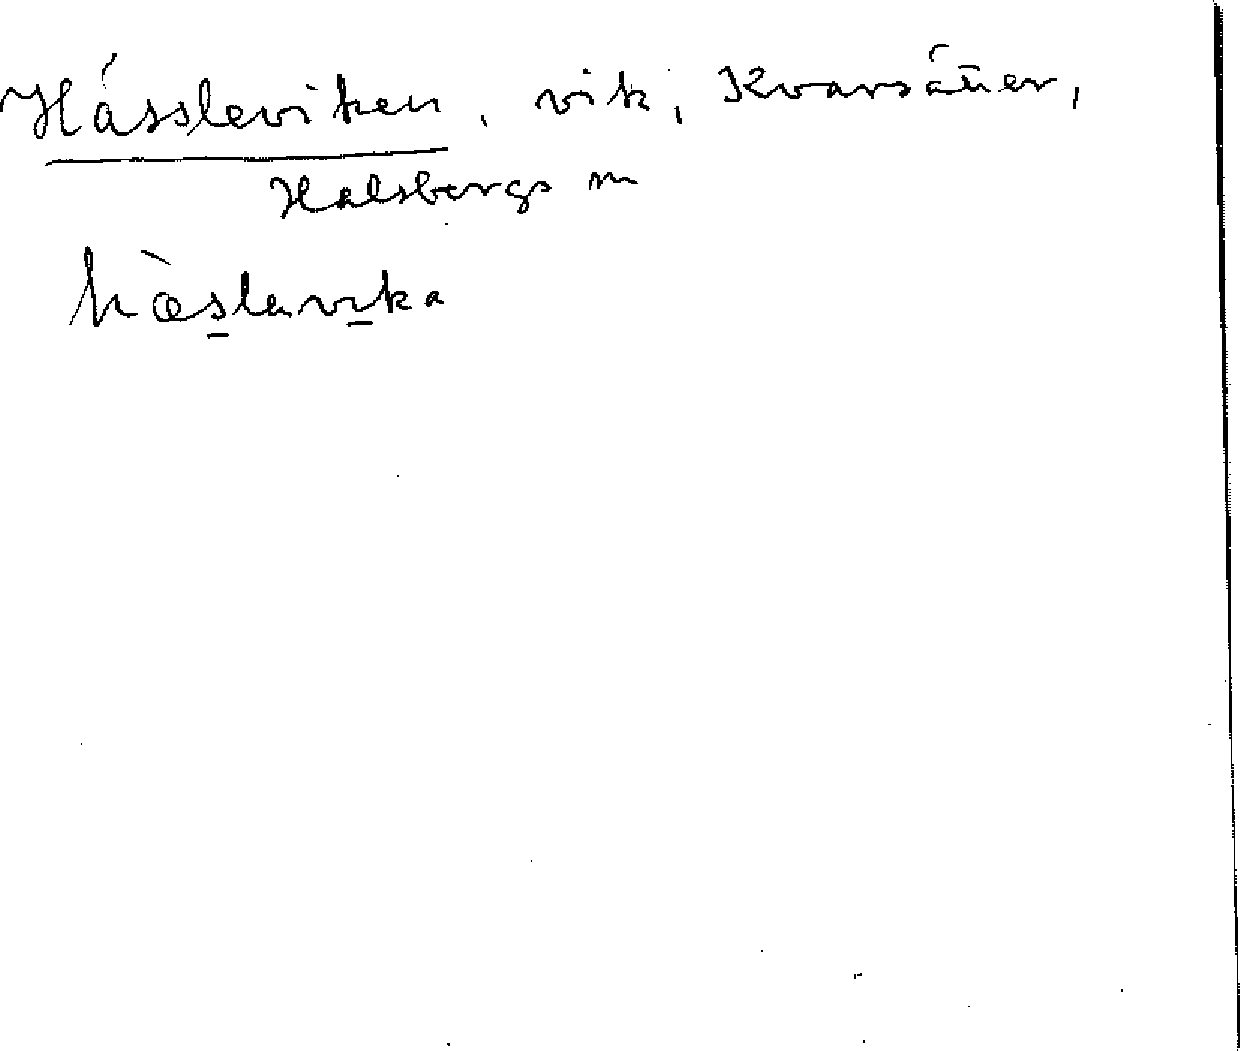 Hässleviken, vik, Kvarsätter,
Halsbergs m
hæslavika